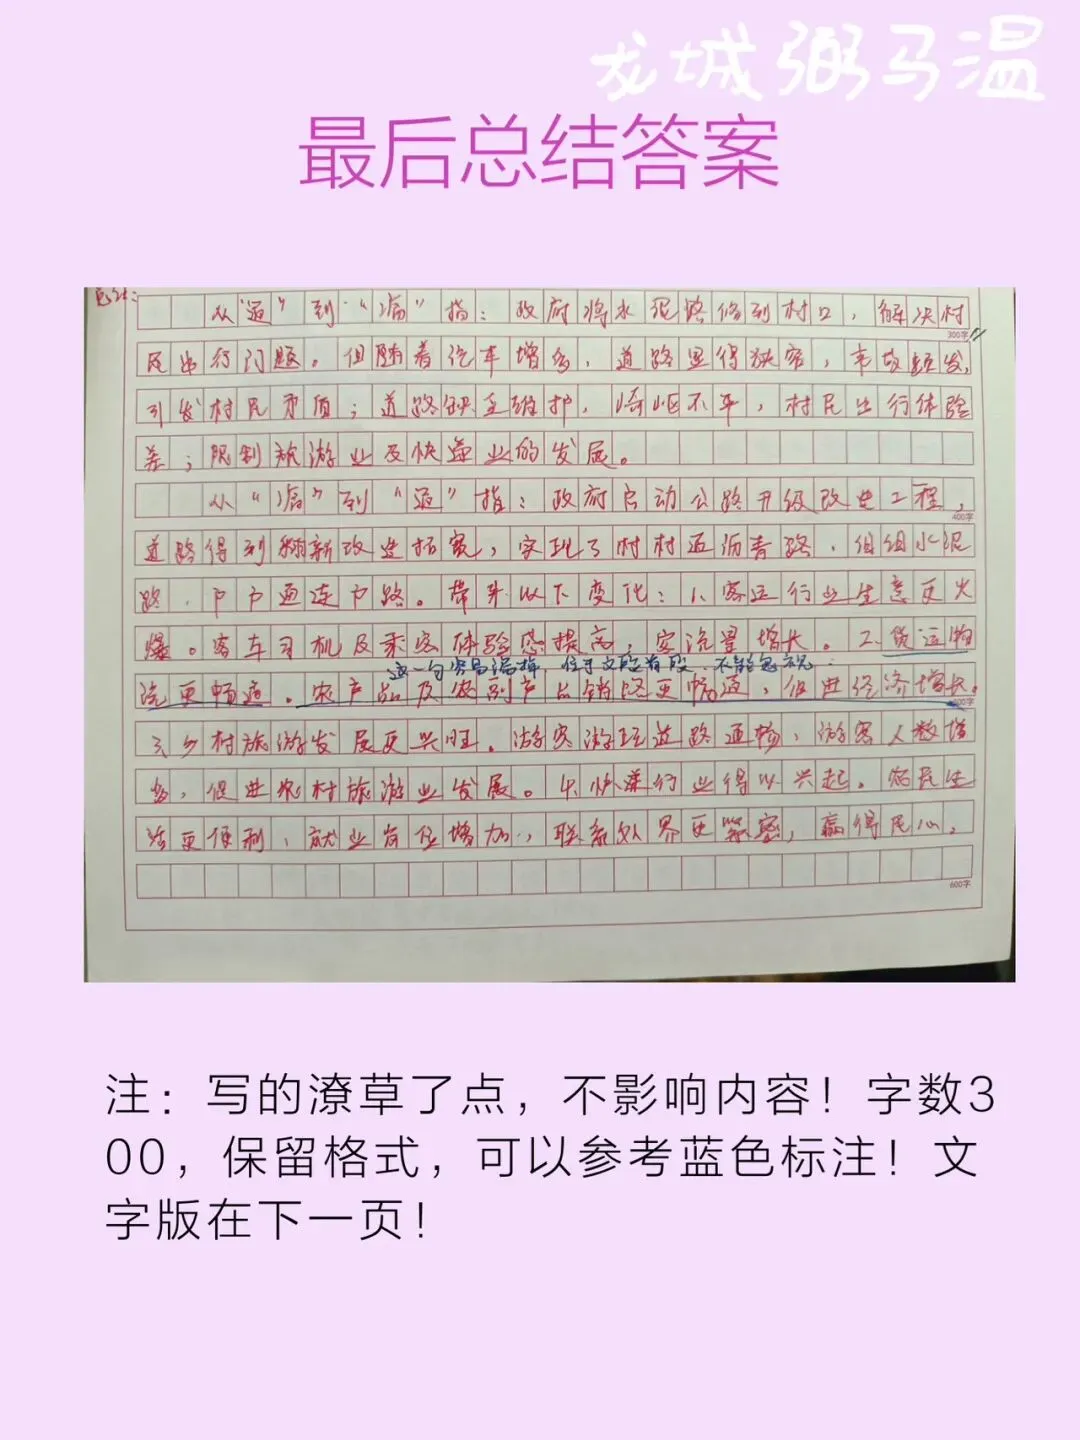 龙城弼马温
最后总结答案
总结：
从“通”到“痛”指：政府将水泥路修到村口，解决村
300字
民出行问题。但随着汽车增多，道路显得狭窄，事故频发，
引发村民矛盾；道路缺乏维护，崎岖不平，村民出行体验
差；限制旅游业及快递业的发展。
从“痛”到“通”指：政府启动公路升级改造工程，
400字
道路得到翻新改造拓宽，实现了村村通沥青路、组组水泥
路、户户通连户路。带来以下变化：1、客运行业生意更火
爆。客车司机及乘客体验感提高，客流量增长。2、货运物
这一句容易漏掉，位于文段前段，不能忽视！
流更畅通。农产品及农副产品销路更畅通，促进经济增长。
500字
3、乡村旅游发展更兴旺。游客游玩道路通畅，游客人数增
多，促进农村旅游业发展。4、快递行业得以兴起。农民生
活更便利，就业岗位增加，联系外界更紧密，赢得民心。
600字
注：写的潦草了点，不影响内容！字数3
00，保留格式，可以参考蓝色标注！文
字版在下一页！